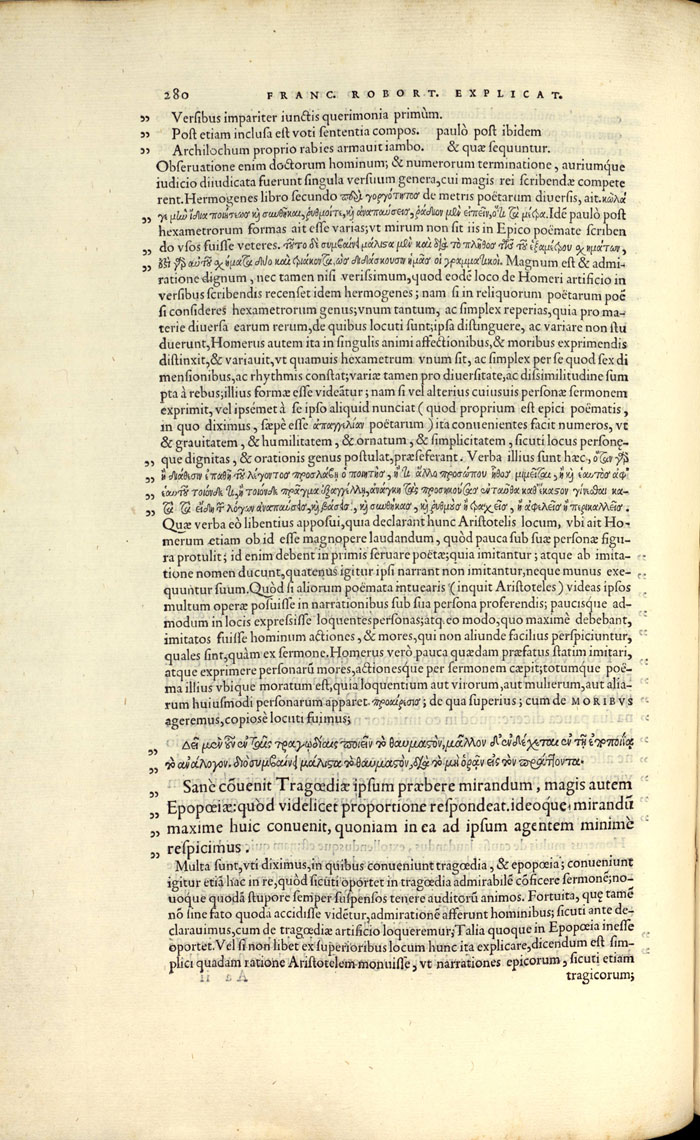 280 FRANC. ROBORT. EXPLICAT.
„ Versibus impariter iunctis querimonia primùm.
„ Post etiam inclusa est voti sententia compos. paulò post ibidem
„ Archilochum proprio rabies armauit iambo. & quæ sequuntur.
Obseruatione enim doctorum hominum; & numerorum terminatione, auriumq́ue
iudicio diiudicata fuerunt singula versuum genera, cui magis rei scribendæ compete
rent. Hermogenes libro secundo περὶ γοργότητος de metris poëtarum diuersis, ait.
„ Idē paulò post
hexametrorum formas ait esse varias; vt mirum non sit iis in Epico poëmate scriben
„ do vsos fuisse veteres. τοῦτο δὲ συμβαίνει μάλιστα μὲν καὶ διὰ τὸ πλῆθος τῶν τοῦ ἑξαμέτρου σχημάτων,
„ ὡς διδάσκουσιν ἡμᾶς οἱ γραμματικοί. Magnum est & admi-
ratione dignum, nec tamen nisi verissimum, quod eodē loco de Homeri artificio in
versibus scribendis recenset idem hermogenes; nam si in reliquorum poëtarum poë
si consideres hexametrorum genus; vnum tantum, ac simplex reperias, quia pro ma-
terie diuersa earum rerum, de quibus locuti sunt; ipsa distinguere, ac variare non stu
duerunt, Homerus autem ita in singulis animi affectionibus, & moribus exprimendis
distinxit, & variauit, vt quamuis hexametrum vnum sit, ac simplex per se quod sex di
mensionibus, ac rhythmis constat; variæ tamen pro diuersitate, ac dissimilitudine sum
pta à rebus; illius formæ esse videātur; nam si vel alterius cuiusuis personæ sermonem
exprimit, vel ipsémet à se ipso aliquid nunciat (quod proprium est epici poëmatis,
in quo diximus, sæpè esse ἀπαγγελίαν poëtarum) ita conuenientes facit numeros, vt
& grauitatem, & humilitatem, & ornatum, & simplicitatem, sicuti locus personę-
„ que dignitas, & orationis genus postulat, præseferant. Verba illius sunt hæc,
„
„
„
Quæ verba eò libentius apposui, quia declarant hunc Aristotelis locum, vbi ait Ho-
merum etiam ob id esse magnopere laudandum, quòd pauca sub suæ personæ figu-
ra protulit; id enim debent in primis seruare poëtæ; quia imitantur; atque ab imita-
tione nomen ducunt, quatenus igitur ipsi narrant non imitantur, neque munus exe-
quuntur suum. Quòd si aliorum poëmata intuearis (inquit Aristoteles) videas ipsos
multum operæ posuisse in narrationibus sub sua persona proferendis; paucisque ad-
modum in locis expressisse loquentes personas; atq́; eo modo, quo maximè debebant,
imitatos fuisse hominum actiones, & mores, qui non aliunde facilius perspiciuntur,
quales sint, quàm ex sermone. Homerus verò pauca quædam præfatus statim imitari,
atque exprimere personarū mores, actionesque per sermonem cæpit; totumque poë-
ma illius vbique moratum est, quia loquentium aut virorum, aut mulierum, aut alia-
rum huiusmodi personarum apparet προαίρεσις; de qua superius; cum de MORIBVS
ageremus, copiosè locuti fuimus;
„ Δεῖ μὲν οὖν ἐν ταῖς τραγῳδίαις ποιεῖν τὸ θαυμαστὸν, μᾶλλον δ' ἐνδέχεται ἐν τῇ ἐποποιίᾳ
„ τὸ ἀνάλογον. διὸ συμβαίνει μάλιστα τὸ θαυμαστὸν, διὰ τὸ μὴ ὁρᾶν εἰς τὸν πράττοντα.
„ Sanè cōuenit Tragœdiæ ipsum præbere mirandum, magis autem
„ Epopœiæ: quòd videlicet proportione respondeat. ideoque mirandū
„ maxime huic conuenit, quoniam in ea ad ipsum agentem minimè
„ respicimus.
Multa sunt, vti diximus, in quibus conueniunt tragœdia, & epopœia; conueniunt
igitur etiā hac in re, quòd sicuti oportet in tragœdia admirabilē cōficere sermonē; no-
uoque quodā stupore semper suspensos tenere auditorū animos. Fortuita, quę tamē
nō sine fato quodā accidisse vidētur, admirationē afferunt hominibus; sicuti ante de-
clarauimus, cum de tragœdiæ artificio loqueremur; Talia quoque in Epopœia inesse
oportet. Vel si non libet ex superioribus locum hunc ita explicare, dicendum est sim-
plici quadam ratione Aristotelem monuisse, vt narrationes epicorum, sicuti etiam
tragicorum;